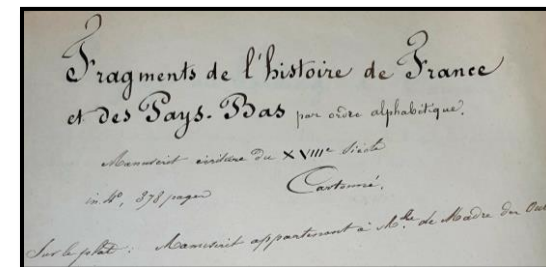 Fragments de l'histoire de France
et des Pays-Bas par ordre alphabétique.
Manuscrit écriture du XVIIIe Siècle
in 4°, 378 pages Cartonné.
Sur le plat : Manuscrit appartenant à Mlle de Madre des